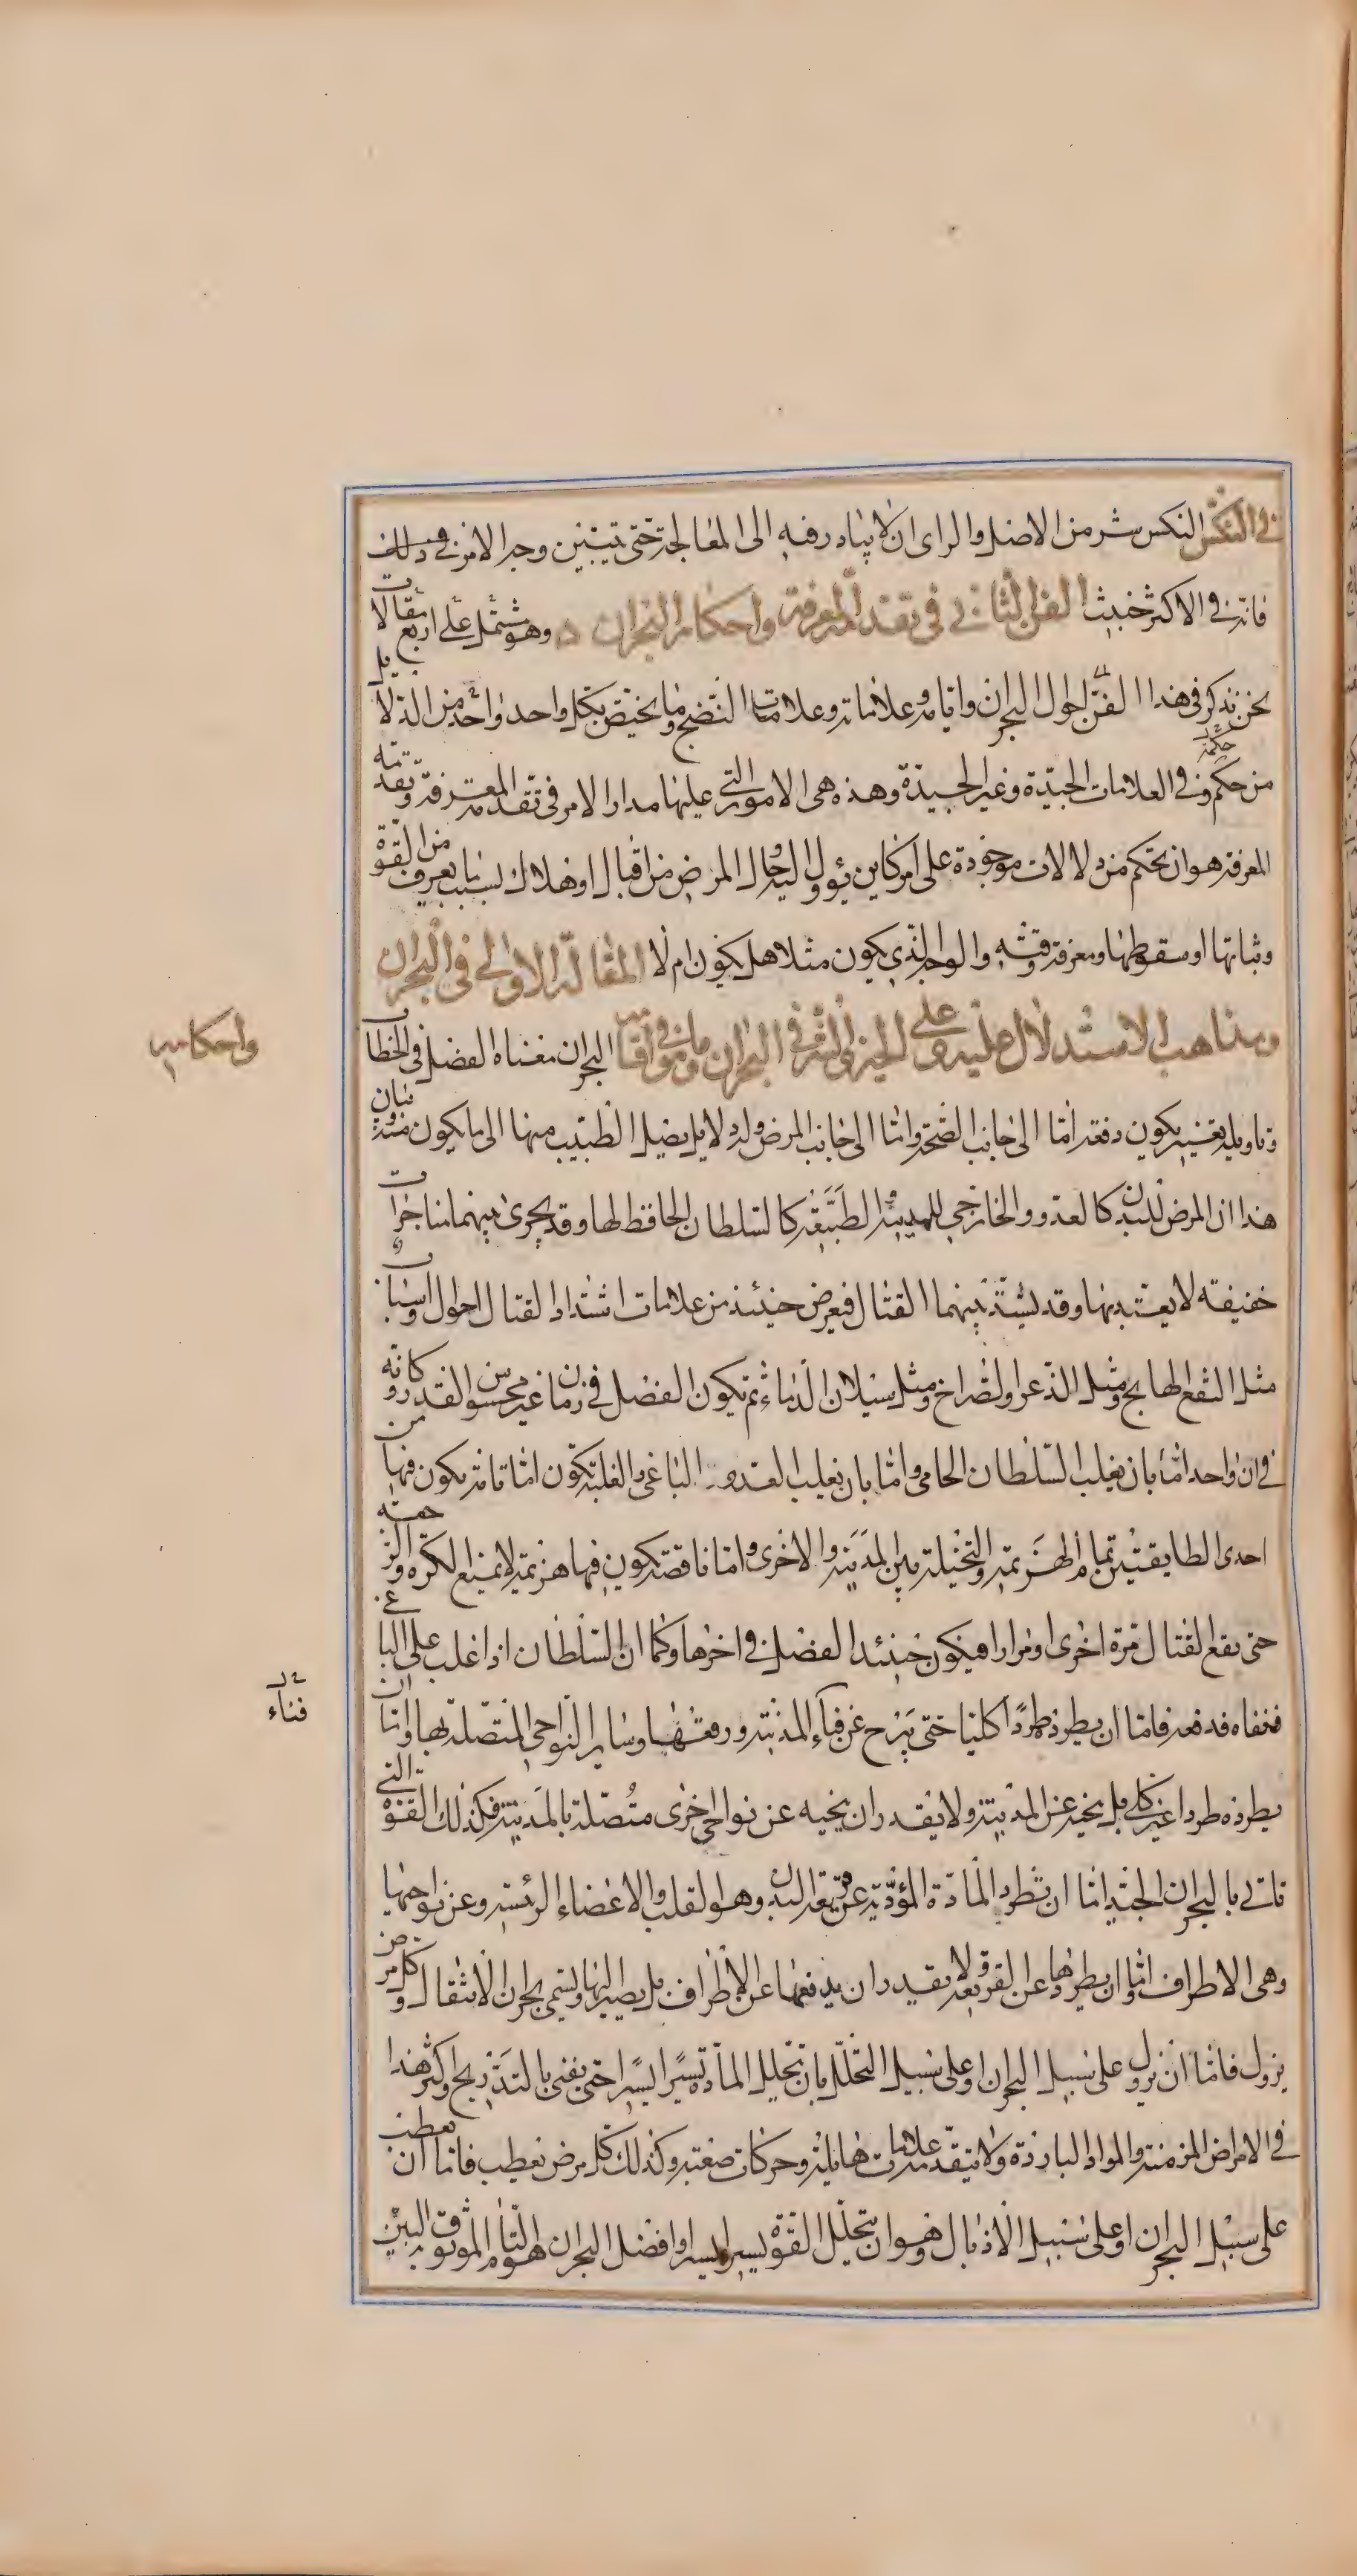 في النكس النكس شر من الاصل والراى ان لا يبادر فيه الى المعالجة حتى يتبين وجه الامر في ذلك
فانه في الاكثر خبيث الفن الثاني في تقدمة المعرفة واحكام البحران وهو يشتمل على اربع مقالات
نحن نذكر في هذا الفن احوال البحران وايامه وعلاماته وعلامات النضج وما يختص بكل واحد واحد من الدلايل
من حكم وفي العلامات الجيدة وغير الجيدة وهذه هي الامور التي عليها مدار الامر في تقدمة المعرفة وتقدمة
المعرفة هو ان تحكم من دلالات موجودة على امر كاين يؤول اليه حال المرض من اقبال او هلاك بسبب ما يعرف من القوة
وثباتها او سقوطها ومعرفة وقته والوجه الذي يكون مثلا هل يكون ام لا المقالة الاولى في البحران
ومذاهب الاستدلال عليه وعلى الخير والشر في البحران وما في موافا
واحكامه
البحران معناه الفصل في الخطاب
وتاويله تغيير يكون دفعة اما الى جانب الصحة واما الى جانب المرض وله دلايل يصل الطبيب منها الى ما يكون منه وبيان
هذا ان المرض للبدن كالعدو الخارجي للمدينة والطبيعة كالسلطان الحافظ لها وقد يجرى بينهما مناجزات
خفيفة لا يعتد بها وقد يشتد بينهما القتال فيعرض حينئذ من علامات اشتداد القتال احوال واسباب
مثل النقع الهايج ومثل الذعر والصراخ ومثل سيلان الدماء ثم يكون الفصل في زمان غير محسوس القدر وكانه
في ان واحد اما بان يغلب السلطان الحامي واما بان يغلب العدو الباغي والغلبة تكون اما تامة يكون فيها من
احدى الطايفتين تمام الهزيمة والتخلية بين المدينة والاخرى واما ناقصة يكون فيها هزيمة لا تمنع الكرة والرجعة
حتى يقع القتال مرة اخرى او مرارا فيكون حينئذ الفصل في اخرها وكما ان السلطان اذا غلب على الباغي
فنفاه ودفعه فاما ان يطرده طردا كليا حتى ينزح عن فناء المدينة ورقعتها وساير النواحي المتصلة بها واما ان
فناء
يطرده طردا غير كلي بل ينحيه عن المدينة ولا يقدر ان ينحيه عن نواحي اخرى متصلة بالمدينة فكذلك القوة التي
تاتي بالبحران الجيد اما ان تطرد المادة المؤذية عن رقعة البدن وهو القلب والاعضاء الرئيسة وعن نواحيها
وهي الاطراف واما ان يطردها عن القرب ولا يقدر ان يدفعها عن الاطراف بل يصير اليها ويسمى بحران الانتقال وكل مرض
يزول فاما ان يزول على سبيل البحران او على سبيل التحلل بان تحلل المادة يسيرا يسيرا حتى يفنى بالتدريج واكثر هذا
في الامراض المزمنة والمواد الباردة ولا تتقدمه علامات هايلة وحركات صعبة وكذلك كل مرض يعطب فاما ان يعطب
على سبيل البحران او على سبيل الاذبال وهو ان يتحلل القوة يسيرا يسيرا وافضل البحران هو التام الموثوق به البين